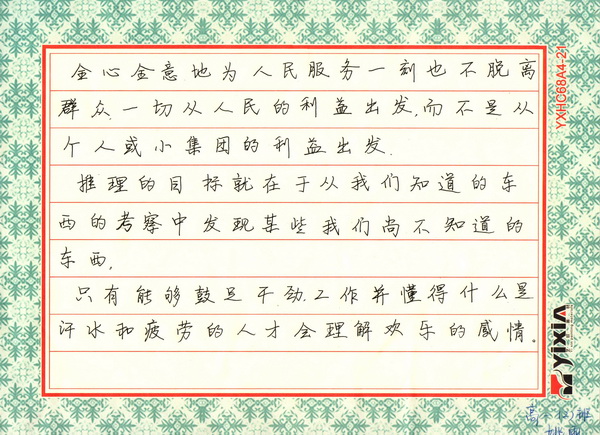 全心全意地为人民服务一刻也不脱离
群众.一切从人民的利益出发,而不是从
个人或小集团的利益出发.
推理的目标就在于从我们知道的东
西的考察中发现某些我们尚不知道的
东西.
只有能够鼓足干劲.工作并懂得什么是
汗水和疲劳的人才会理解欢乐的感情。
YXHC68A4-21
yixin
高一(2)班